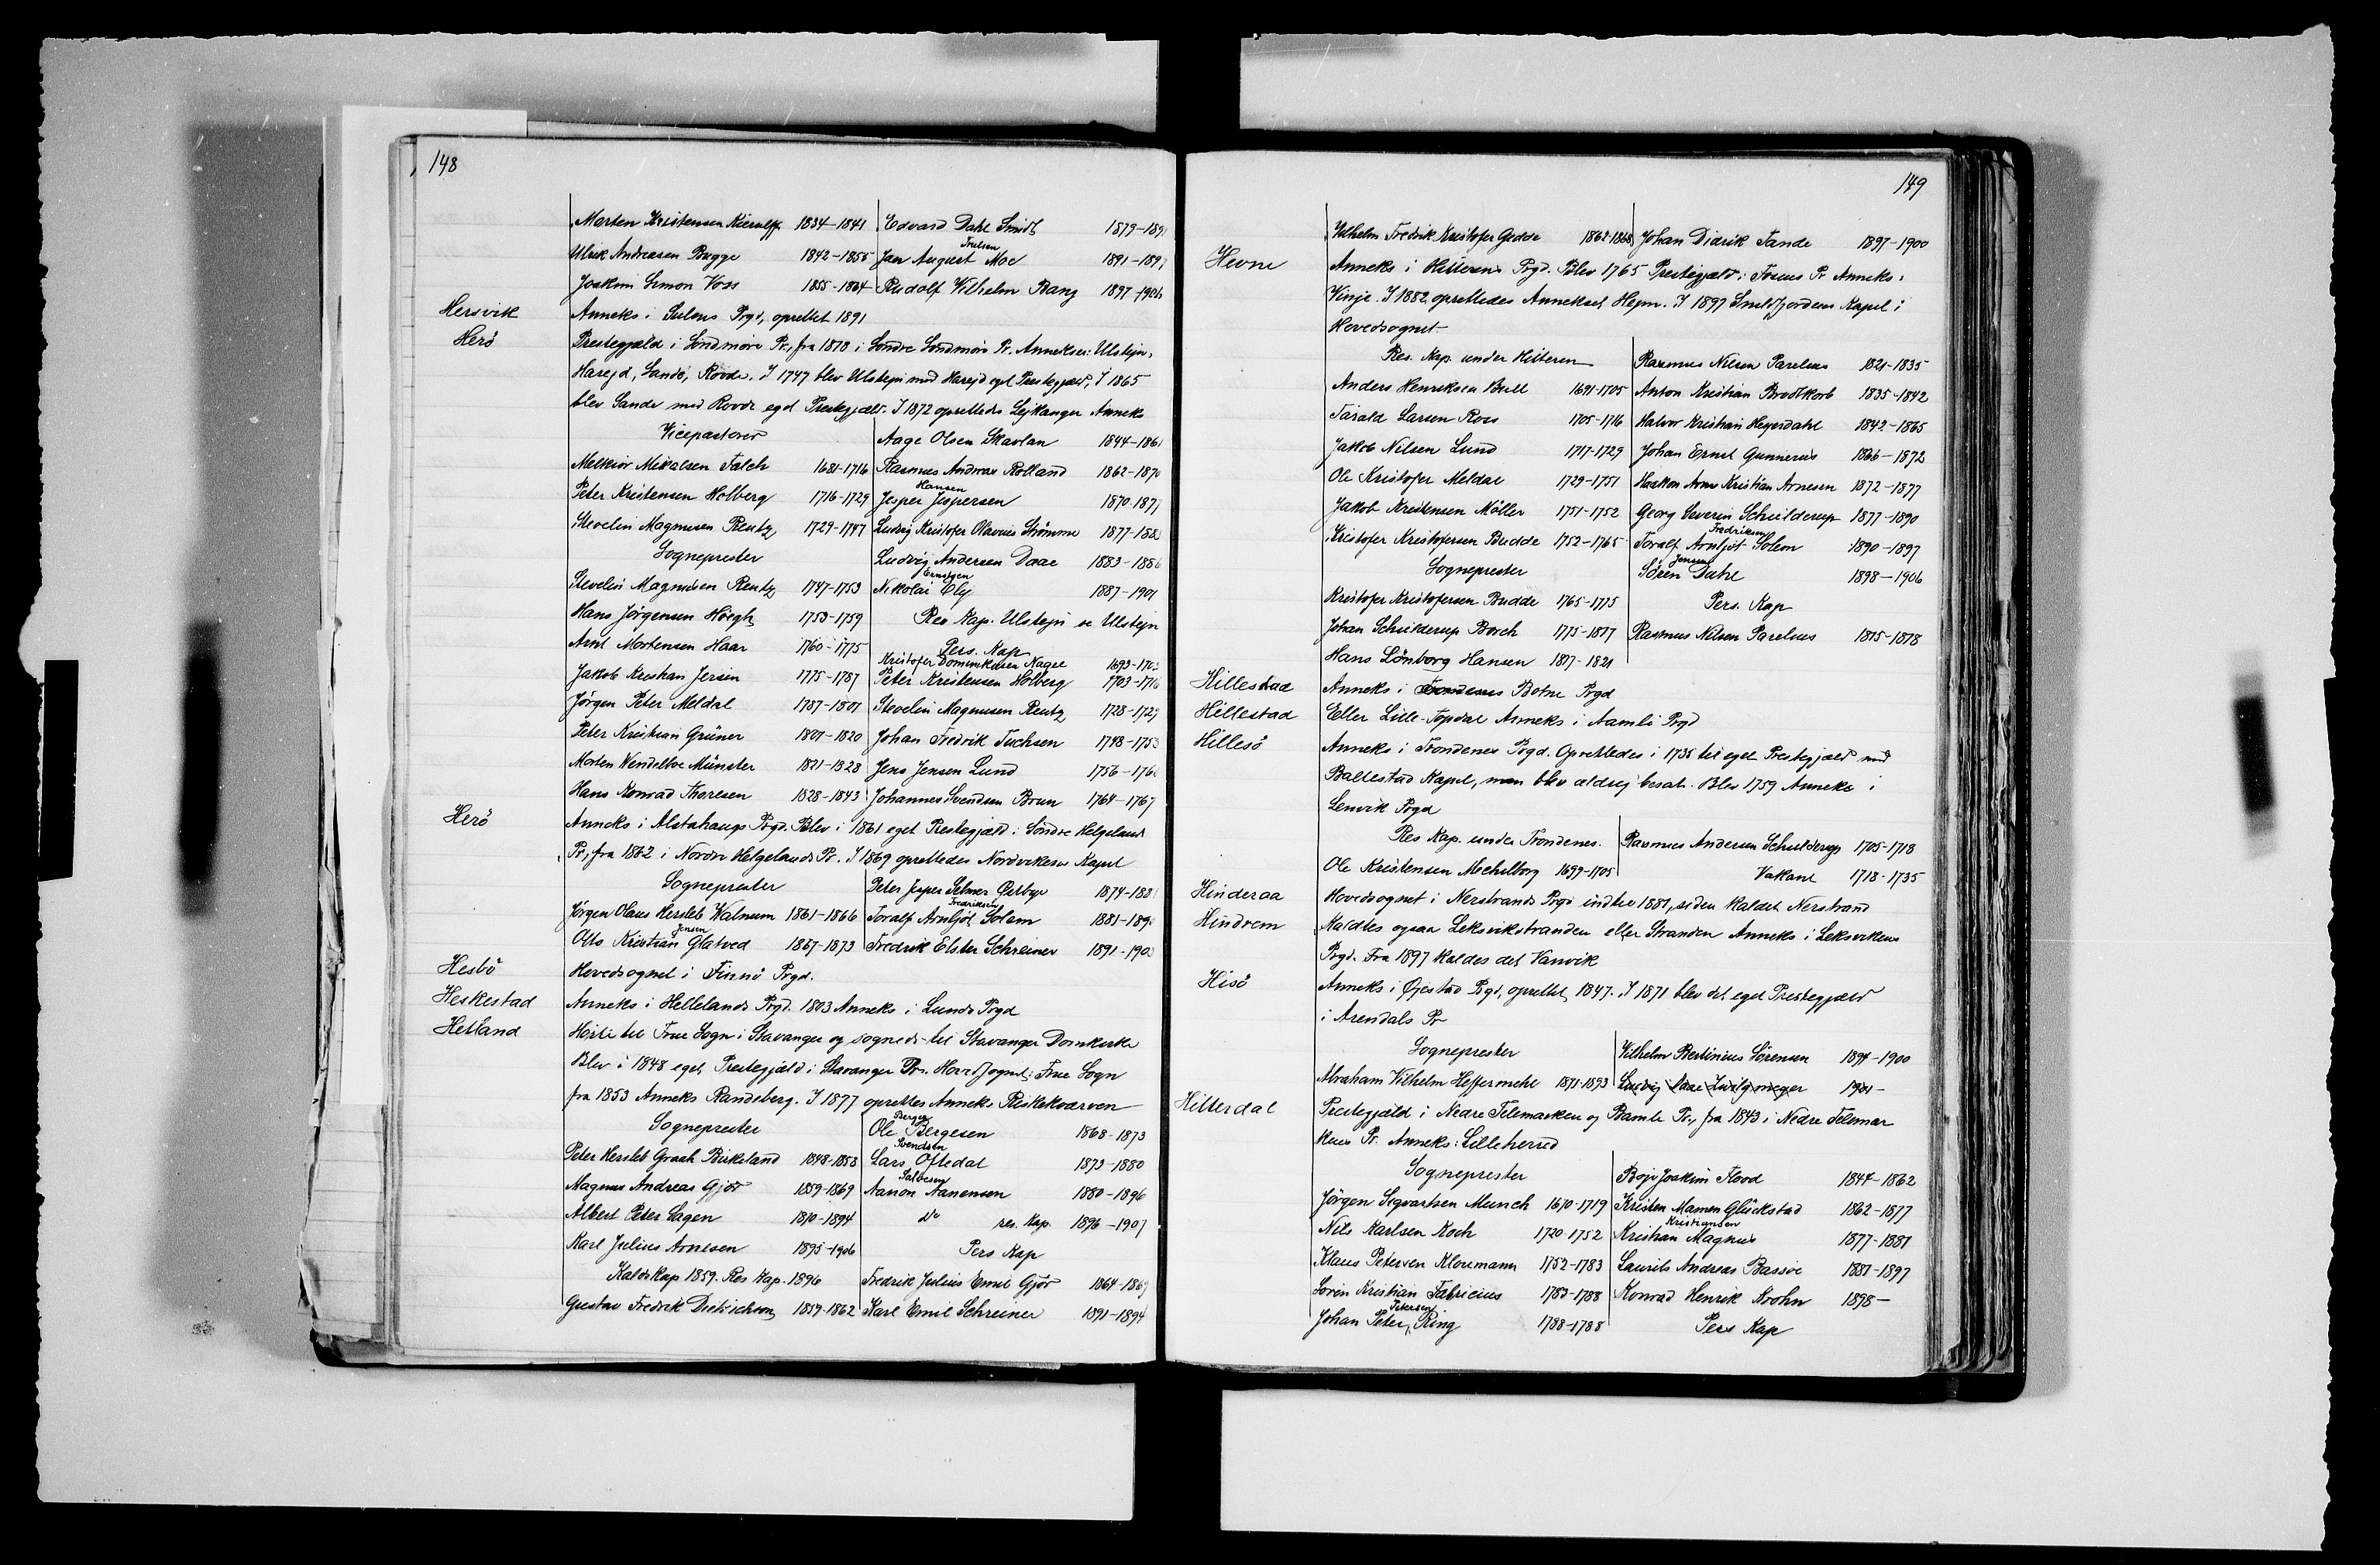 148
Morten Kristensen Kierulff 1834-1841 Edvard Dahl Smidt 1879-189
Ulrik Andreasen Bugge 1842-1855 Jan August Truelsen Moe 1891-1897
Joakim Simon Voss 1855-1864 Rudolf Vilhelm Bang 1897-1906
Hersvik Anneks i Sulens Prgd, oprettet 1891
Herö Prestegjæld i Söndmöre Pr., fra 1878 i Söndre Söndmöre Pr. Annekser: Ulstejn,
Harejd, Sande, Rovde. I 1747 blev Ulstejn med Harejd eget Prestegjæld, I 1865
blev Sande med Rovde eget Prestegjæld. I 1872 oprettedes Lejkanger Anneks
Vicepastorer Aage Olsen Skavlan 1844-1861
Melkior Mikalsen Falch 1681-1716 Rasmus Andreas Rolland 1862-1870
Peter Kristensen Holberg 1716-1729 Jesper Hansen Jespersen 1870-1877
Stevelin Magnusen Reutz 1729-1747 Ludvig Kristofer Olavius Strömme 1877-1882
Sogneprester Ludvig Andersen Daae 1883-1886
Stevelin Magnusen Reutz 1747-1753 Nikolai Ernstsen Ely 1887-1901
Hans Jörgensen Höegh 1753-1759 Res Kap. Ulstejn se Ulstejn
Arnt Mortensen Haar 1760-1775 Pers. Kap
Kristofer Dominikusen Nagel 1693-170
Jakob Kristian Jersin 1775-1787 Peter Kristensen Holberg 1703-1716
Jörgen Peter Meldal 1787-1801 Stevelin Magnusen Reutz 1728-1729
Peter Kristian Grüner 1801-1820 Johan Fredrik Tuchsen 1748-1753
Morten Vendelboe Münster 1821-1828 Jens Jensen Lund 1756-176
Hans Konrad Thoresen 1828-1843 Johannes Svendsen Brun 1764-1767
Herö Anneks i Alstahaugs Prgd. Blev i 1861 eget Prestegjæld i Söndre Helgelands
Pr., fra 1862 i Nordre Helgelands Pr. I 1869 oprettedes Nordvikens Kapel
Sogneprester Peter Jesper Selmer Østbye 1874-188
Jörgen Olaus Hersleb Walnum 1861-1866 Toralf Arnljot Fredriksen Solem 1881-189
Otto Kristian Jensen Glatved 1867-1873 Fredrik Elster Schreiner 1891-190
Hesbö Hovedsognet i Finnö Prgd.
Heskestad Anneks i Hellelands Prgd. 1803 Anneks i Lunds Prgd
Hetland Hörte til Frue Sogn i Stavanger og sognede til Stavanger Domkirke
Blev i 1848 eget Prestegjæld i Stavanger Pr. Hovedsognet: Frue Sogn
fra 1853 Anneks Randeberg. I 1877 oprettes Anneks Riskekvarven
Sogneprester Ole Berges Bergesen 1868-1873
Peter Hersleb Graah Birkeland 1848-1858 Lars Svendsen Oftedal 1873-1880
Magnus Andreas Gjör 1859-1869 Aanon Salvesen Aanensen 1880-1896
Albert Peter Sagen 1870-1894 Do res. Kap. 1896-1907
Karl Julius Arnesen 1895-1906 Pers Kap
Kaldskap 1859. Res Kap. 1896 Fredrik Julius Emil Gjör 1864-1869
Gustav Fredrik Dietrichson 1859-1862 Karl Emil Schreiner 1891-1894
149
Vilhelm Fredrik Kristofer Gedde 1862-1868 Johan Didrik Tande 1897-1900
Hevne Anneks i Hitterens Prgd. Blev 1765 Prestegjæld i Fosens Pr Anneks:
Vinje. I 1882 oprettedes Annekset Hejm. I 1897 Snilfjordens Kapel i
Hovedsognet
Res. Kap. under Hitteren Rasmus Nilsen Parelius 1821-1835
Anders Henriksen Bull 1691-1705 Anton Kristian Brodtkorb 1835-1842
Tarald Larsen Ross 1705-1716 Halvor Kristian Heyerdahl 1842-1865
Jakob Nilsen Lund 1717-1729 Johan Ernst Gunnerus 1866-1872
Ole Kristofer Meldal 1729-1751 Haakon Arne Kristian Arnesen 1872-1877
Jakob Kristensen Möller 1751-1752 Georg Severin Schielderup 1877-1890
Kristofer Kristofersen Budde 1752-1765 Toralf Arnljot Fredriksen Solem 1890-1897
Sogneprester Sören Jensen Dahl 1898-1906
Kristofer Kristofersen Budde 1765-1775 Pers. Kap
Johan Schielderup Borch 1775-1817 Rasmus Nilsen Parelius 1815-1818
Hans Lönborg Hansen 1817-1821
Hillestad Anneks i Botne Prgd
Hillestad Eller Lille-Topdal Anneks i Aamli Prgd
Hillesö Anneks i Trondenes Prgd. Oprettedes i 1735 til eget Prestegjæld med
Ballestad Kapel, men blev aldrig besat. Blev 1759 Anneks i
Lenvik Prgd
Res Kap. under Trondenes. Rasmus Andersen Schielderup 1705-1718
Ole Kristensen Mechelborg 1699-1705 Vakant 1718-1735
Hinderaa Hovedsognet i Nerstrands Prgd indtil 1881, siden kaldet Nerstrand
Hindrem Kaldtes ogsaa Leksvikstranden eller Stranden Anneks i Leksvikens
Prgd. Fra 1897 kaldes det Vanvik
Hisö Anneks i Øjestad Prgd, oprettet 1847. I 1871 blev det eget Prestegjæld
i Arendals Pr
Sogneprester Vilhelm Bertinius Sörensen 1894-1900
Abraham Vilhelm Heffermehl 1871-1893 Ludvig Daae Zwilgmeyer 1901-
Hitterdal Prestegjæld i Nedre Telemarken og Bamle Pr., fra 1843 i Nedre Telemar
kens Pr. Anneks: Lilleherred
Sogneprester Boje Joakim Flood 1844-1862
Jörgen Segvartsen Munch 1670-1719 Kristen Mamen Glückstad 1862-1877
Nils Karlsen Koch 1720-1752 Kristian Kristiansen Magnus 1877-1881
Klaus Petersen Kloremann 1752-1783 Laurits Andreas Bassöe 1881-1897
Sören Kristian Fabricius 1783-1788 Konrad Henrik Krohn 1898-
Johan Peter Petersen Ring 1788-1788 Pers Kap